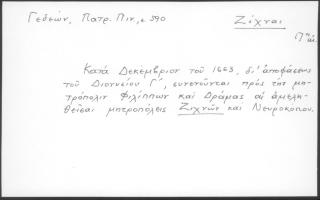 Γεδεών, Πατρ. Πιν., σ 590
Ζίχναι
17ος αἰ.
Κατά Δεκέμβριον τοῦ 1663, δι' ἀποφάσεως
τοῦ Διονυσίου Γ', ἑνοῦνται πρός τήν μη-
τρόπολιν Φιλίππων καί Δράμας αἱ
θεῖσαι μητροπόλεις Ζιχνῶν καί Νευροκόπου.